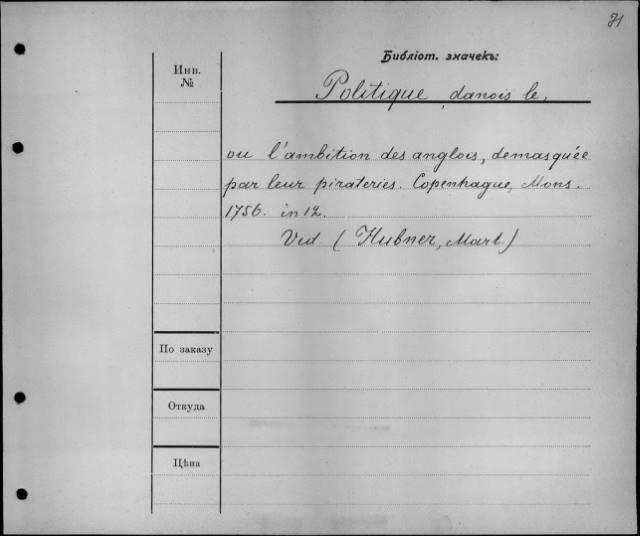 71
Библіот. значекъ:
Инв.
№
Politique danois le,
ou l'ambition des anglois, demasquée
par leur pirateries. Copenhague, Mons.
1756. in 12.
Vid (Hubner, Mart.)
По заказу
Откуда
Цѣна